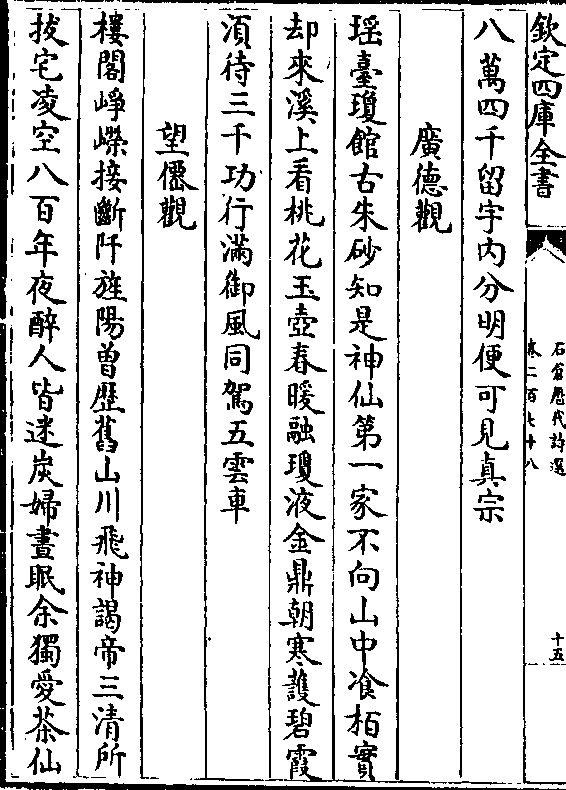 欽定四庫全書
石倉歷代詩選
卷二百七十八
十五
八萬四千留字內分明便可見真宗
廣德觀
瑶臺瓊館古朱砂知是神仙第一家不向山中飡栢實
却來溪上看桃花玉壺春暖融瓊液金鼎朝寒護碧霞
湏待三千功行滿御風同駕五雲車
望僊觀
樓閣崢嶸接斷阡旌陽曾歷舊山川飛神謁帝三清所
拔宅凌空八百年夜醉人皆迷炭婦晝眠余獨愛茶仙